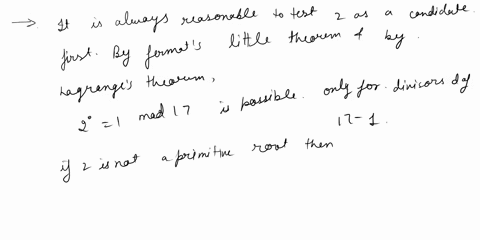 → It is always reasonable to test 2 as a candidate
first. By fermat's little theorem & by
Lagrange's theorem,
2° = 1 mod 17 is possible only for divisors d of
17-1.
if 2 is not a primitive root then